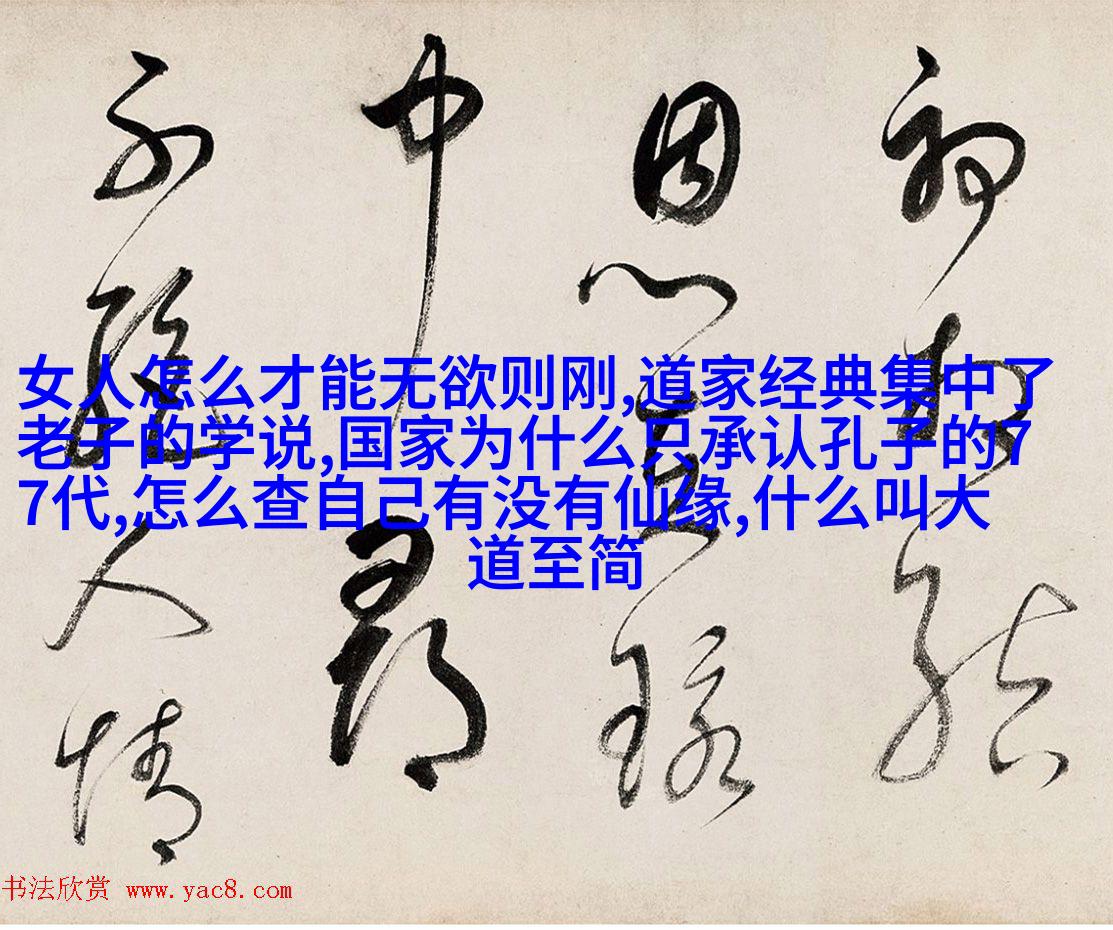 女人怎么才能无欲则刚,道家经典集中了
老子的学说,国家为什么只承认孔子的7
7代,怎么查自己有没有仙缘,什么叫大
道至简
恩
中尋
不人情
书法欣赏 www.yac8.com